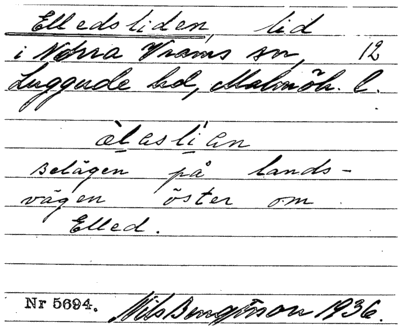 Elledsliden, lid
i Norra Vrams sn, 12
Luggude hd, Malmöh. l.
èlaslían
belägen på lands-
vägen öster om
Elled.
Nr 5694. Nils Bengtsson 1936.